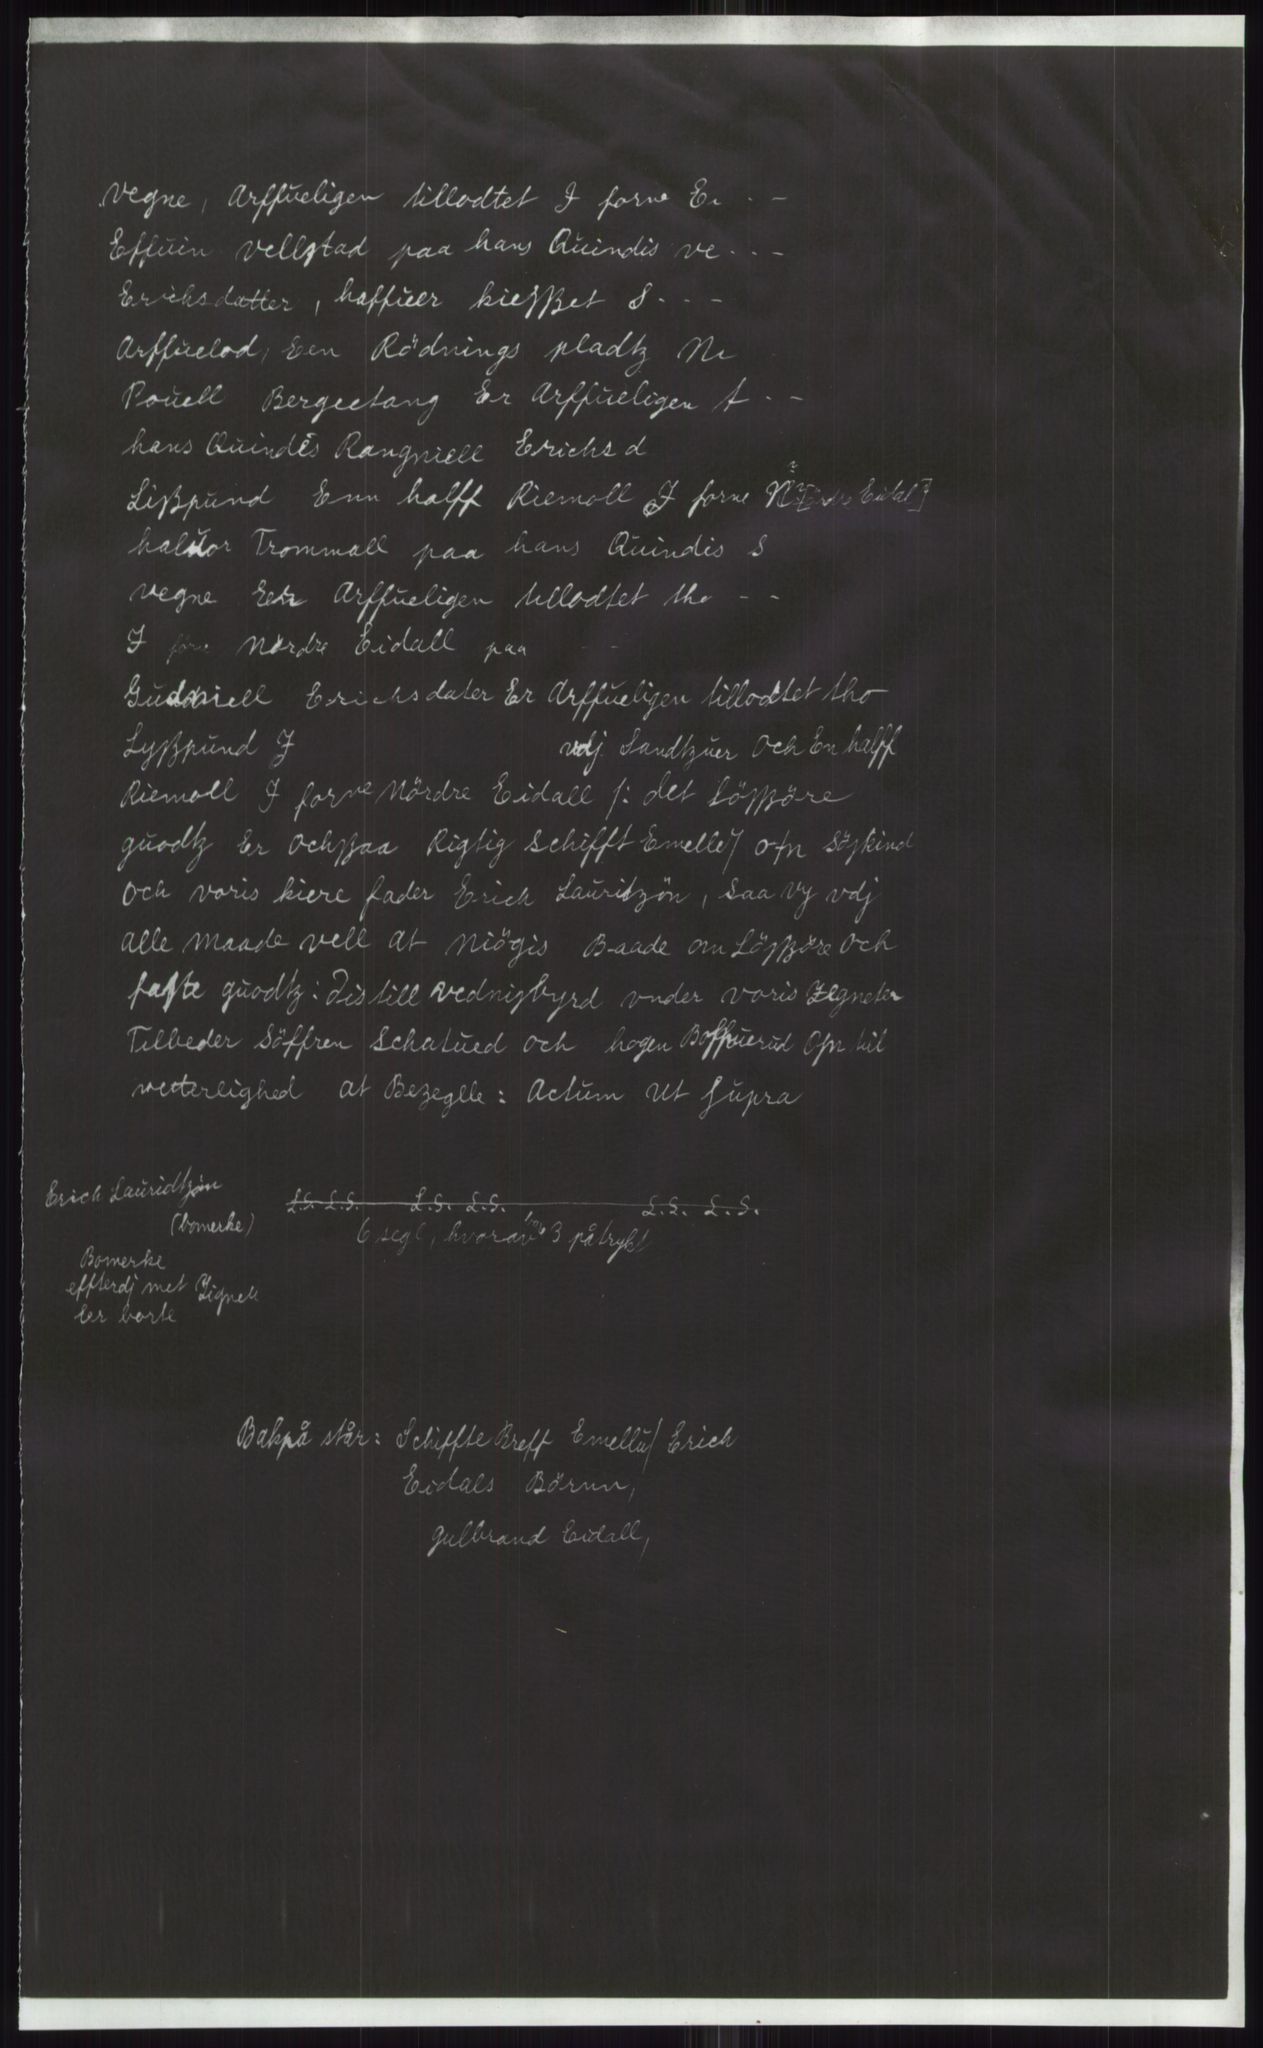 vegne, Arffueligen tillodtet I forne Ei - -
Effuin vellstad paa hans Quindis ve - - -
Erichsdatter, haffuer kiessßet S - - -
Arffuelod, Een Rödnings pladtz Ne
Pouell Bergeetang Er Arffueligen t - -
hans Quindis Rangniell Erichsd
Lißpund Enn halff Riemoll I forne N[ördre Eidal]
haluor Trommall paa hans Quindis S
vegne Eer Arffueligen tillodtet tho - -
I forne Nordre Eidall paa - -
Gudniell Erichsdater Er Arffueligen tillodtet tho
Lyßpund I vdj Sandtzuer Och En halff
Riemoll I forne Nördre Eidall /: det Lösßöre
guodtz Er Ochßaa Rigtig Schifft Emellej ofn Söskind
Och voris kiere fader Erich Lauritzön, saa vy vdj
alle maade vell at Niögis Baade om Lösßöre Och
faste guodtz: Distill vednisbyrd vnder voris Zegneter
Tilbeder Söffren Schatued och hogen Boffuerud Ofn til
vetterlighed at Bezeglle: Actum Ut Supra
Erich Lauridtzön
(bomerke)
L.S. L.S. L.S. L.S. L.S. L.S.
6 segl, hvorav 3 påtrykt
Bomerke
effterdj met Zignett
Er borte
Bakpå står: Schiffte Breff Emellu/ Erich
Eidals Börnn,
gulbrand Eidall,